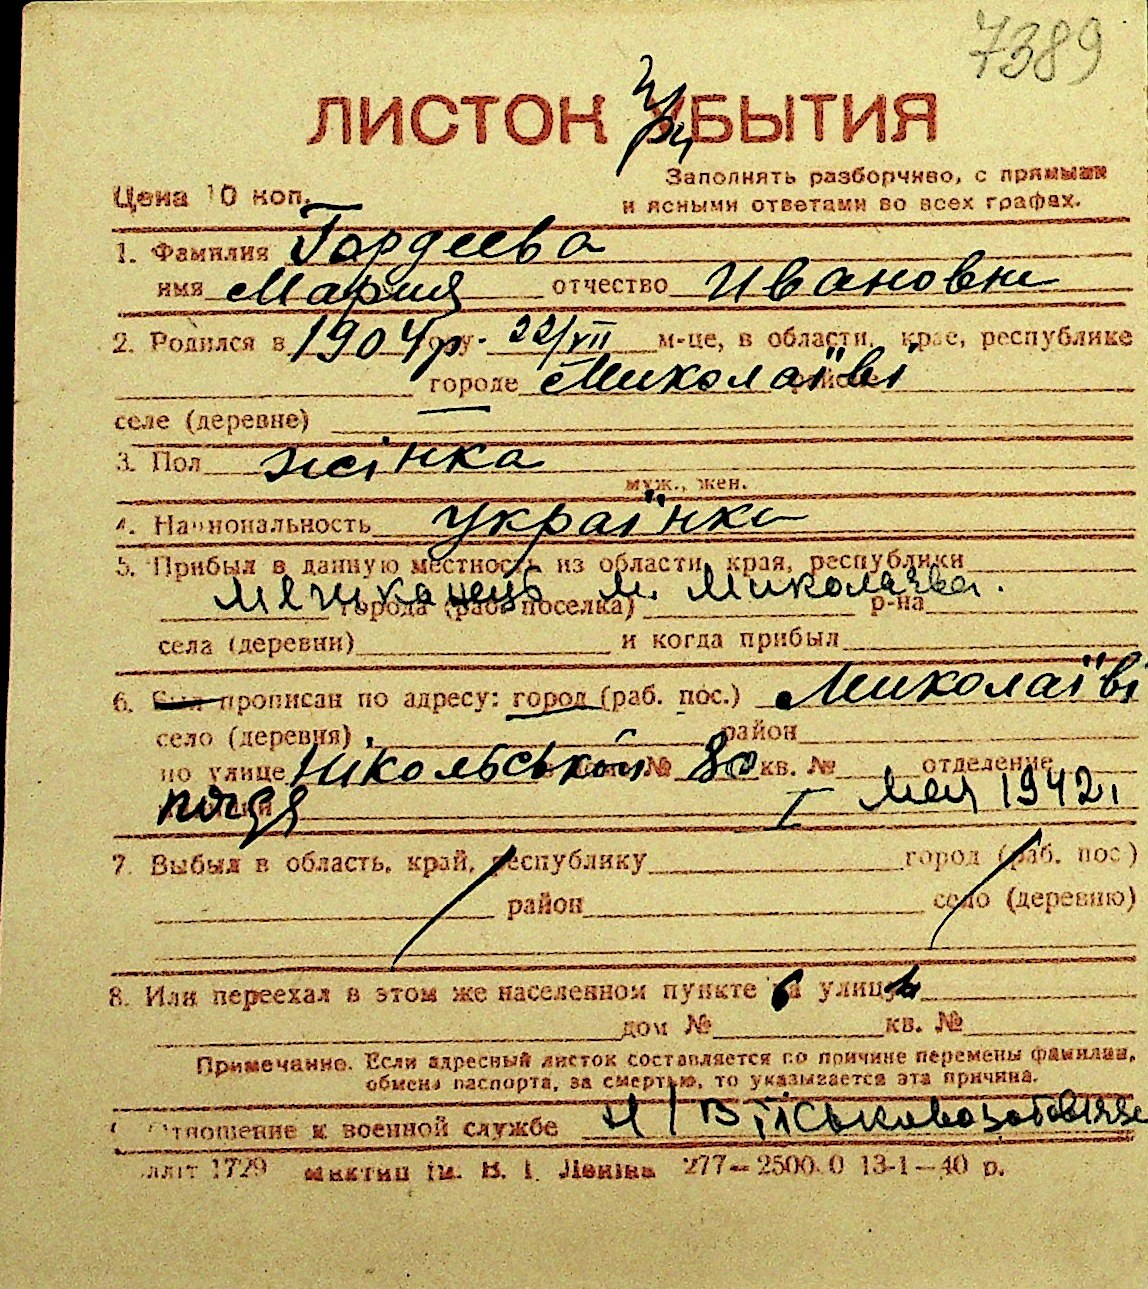 7389
ЛИСТОК УБЫТИЯ
Цена 10 коп.
Заполнять разборчиво, с прямыми
и ясными ответами во всех графах.
1. Фамилия Гордеева
имя Мария отчество Ивановна
2. Родился в 1904 р. году 22/VII м-це, в области, крае, республике
городе Миколаїві районе
селе (деревне)
3. Пол жінка
муж., жен.
4. Национальность українка
5. Прибыл в данную местность из области, края, республики
мешканець м. Миколаєва.
города (раб. поселка) р-на
села (деревни) и когда прибыл
6. Был прописан по адресу: город (раб. пос.) Миколаїві
село (деревня) район
по улице Нікольській 80 кв. № отделение
I мая 1942
7. Выбыл в область, край, республику город (раб. пос.)
район село (деревню)
8. Или переехал в этом же населенном пункте на улицу
дом № кв. №
Примечание. Если адресный листок составляется по причине перемены фамилии,
обмена паспорта, за смертью, то указывается эта причина.
Отношение к военной службе н/військовозобовязан
літ 1729 Миктип ім. В. І. Леніна 277—2500.0 13-1—40 р.